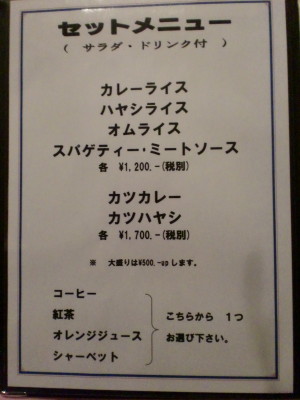 セットメニュー
( サラダ・ドリンク付 )
カレーライス
ハヤシライス
オムライス
スパゲティー・ミートソース
各 ¥1,200.-(税別)
カツカレー
カツハヤシ
各 ¥1,700.-(税別)
※ 大盛りは¥500.-upします。
コーヒー
紅茶
オレンジジュース
シャーベット
こちらから 1つ
お選び下さい。